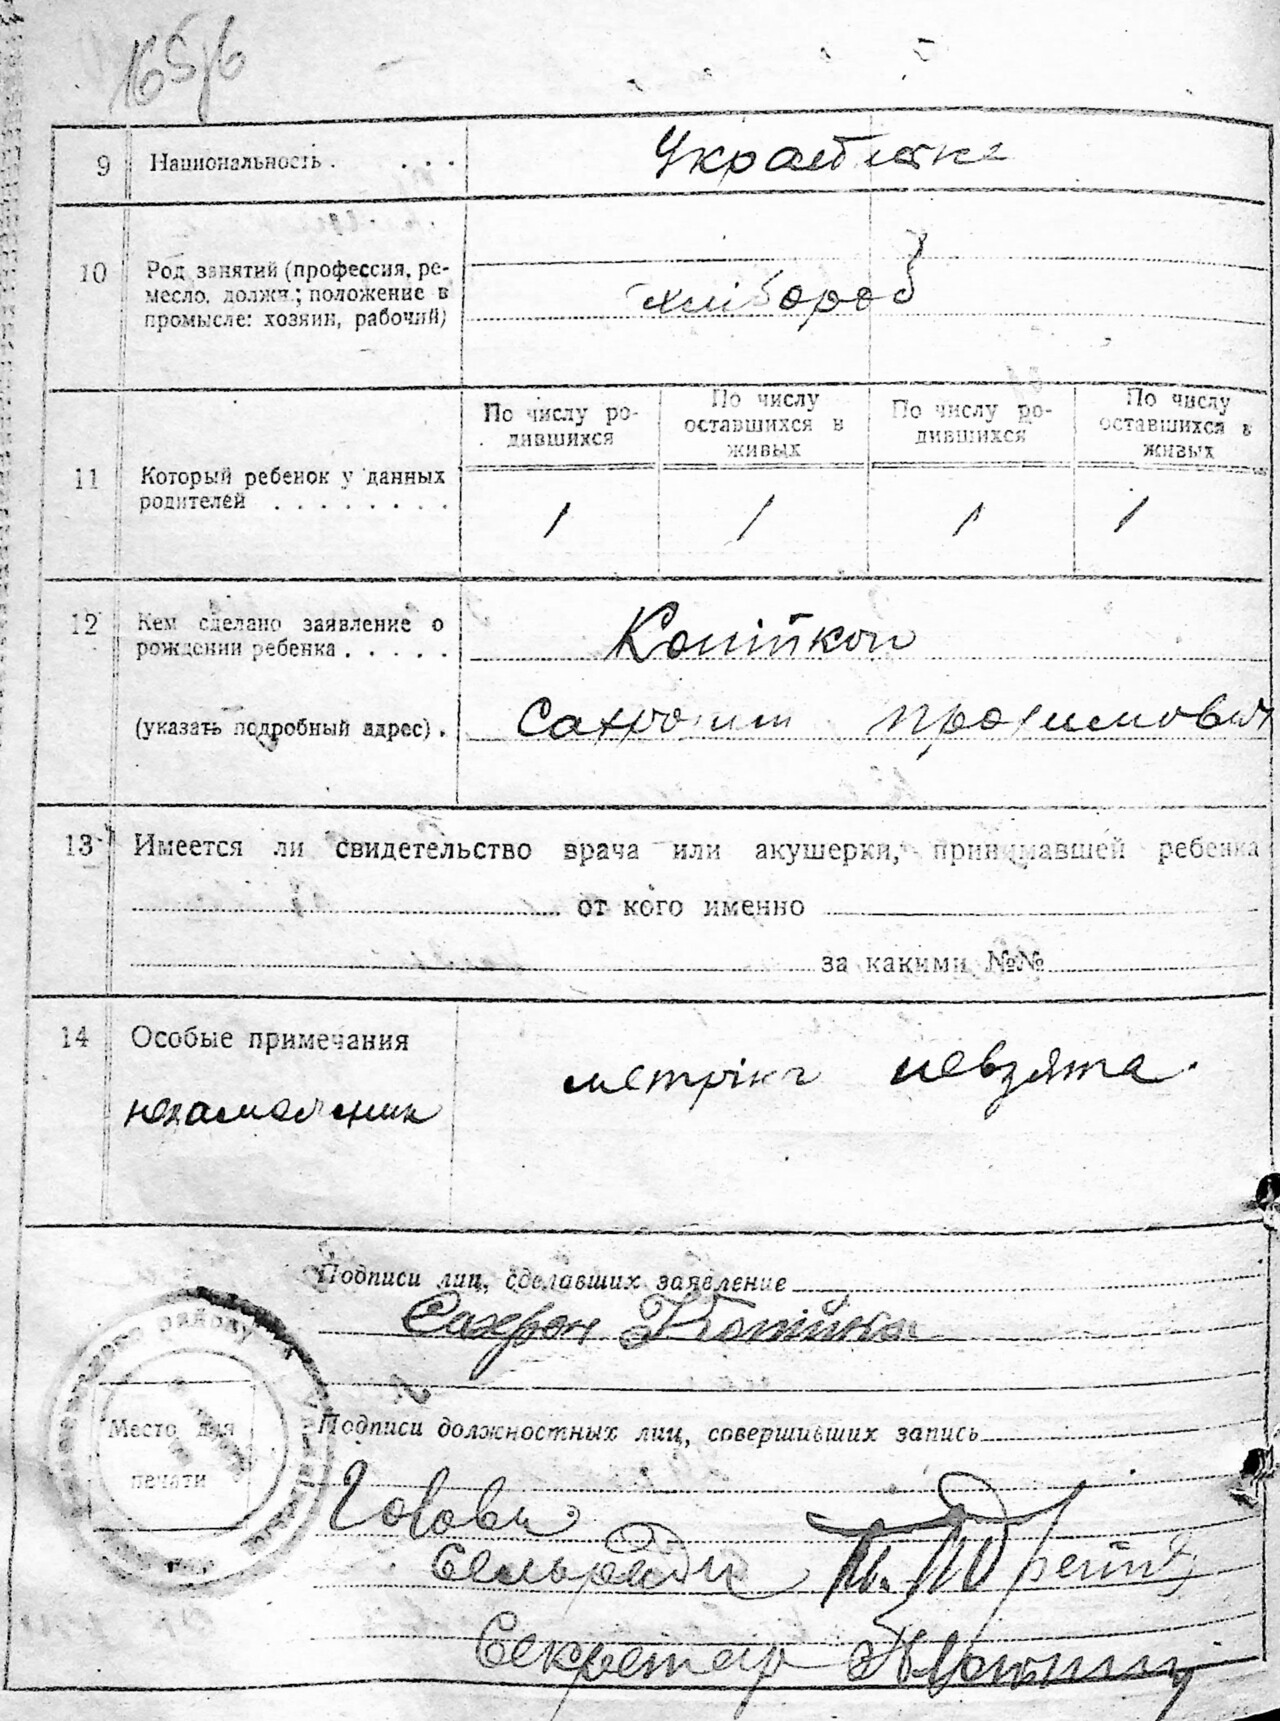 165/6
9 Национальность . . . . Українка
10 Род занятий (профессия, ре-
месло, должн.; положение в
промысле: хозяин, рабочий)
хлібороб
11 Который ребенок у данных
родителей . . . . . . . .
По числу ро-
дившихся
По числу
оставшихся в
живых
По числу ро-
дившихся
По числу
оставшихся в
живых
1 1 1 1
12 Кем сделано заявление о
рождении ребенка . . . . .
Копійкой
(указать подробный адрес) .
Сахроном
13 Имеется ли свидетельство врача или акушерки, принимавшей ребенка
от кого именно
за какими №№
14 Особые примечания
незаможник
метріка невзята.
Подписи лиц, сделавших заявление
Сахрон Копійка
району
Место для
печати
Подписи должностных лиц, совершивших запись
Голова
Сельради
Секретар